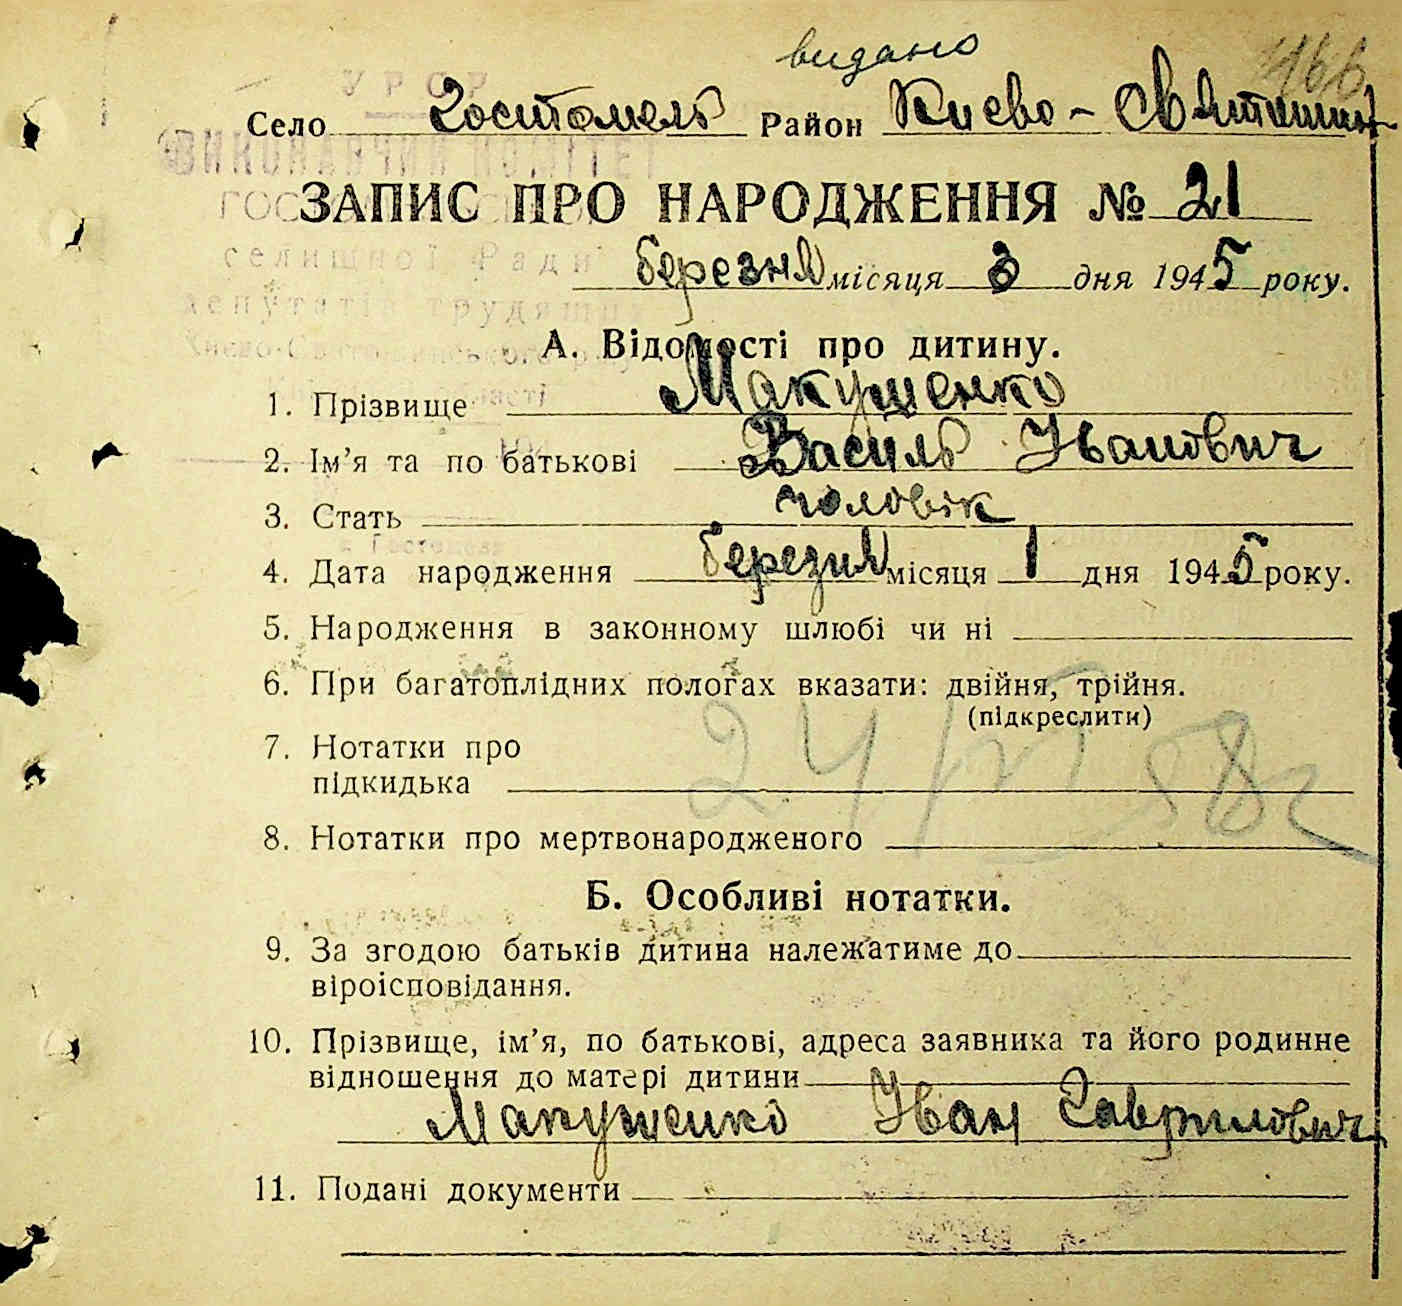 видано 166
УРСР
Село Гостомель Район Києво-Святошин
ВИКОНАВЧИЙ КОМІТЕТ
ЗАПИС ПРО НАРОДЖЕННЯ № 21
селищної Ради
березня місяця 3 дня 1945 року.
депутатів трудящих
А. Відомості про дитину.
Києво-Святошинського р-ну
1. Прізвище Макушенко
2. Ім'я та по батькові Василь Іванович
3. Стать чоловік
4. Дата народження березня місяця 1 дня 1945 року.
5. Народження в законному шлюбі чи ні
6. При багатоплідних пологах вказати: двійня, трійня.
(підкреслити)
7. Нотатки про
підкидька
8. Нотатки про мертвонародженого
Б. Особливі нотатки.
9. За згодою батьків дитина належатиме до
віроісповідання.
10. Прізвище, ім'я, по батькові, адреса заявника та його родинне
відношення до матері дитини
Макушенко Іван Гаврилович
11. Подані документи